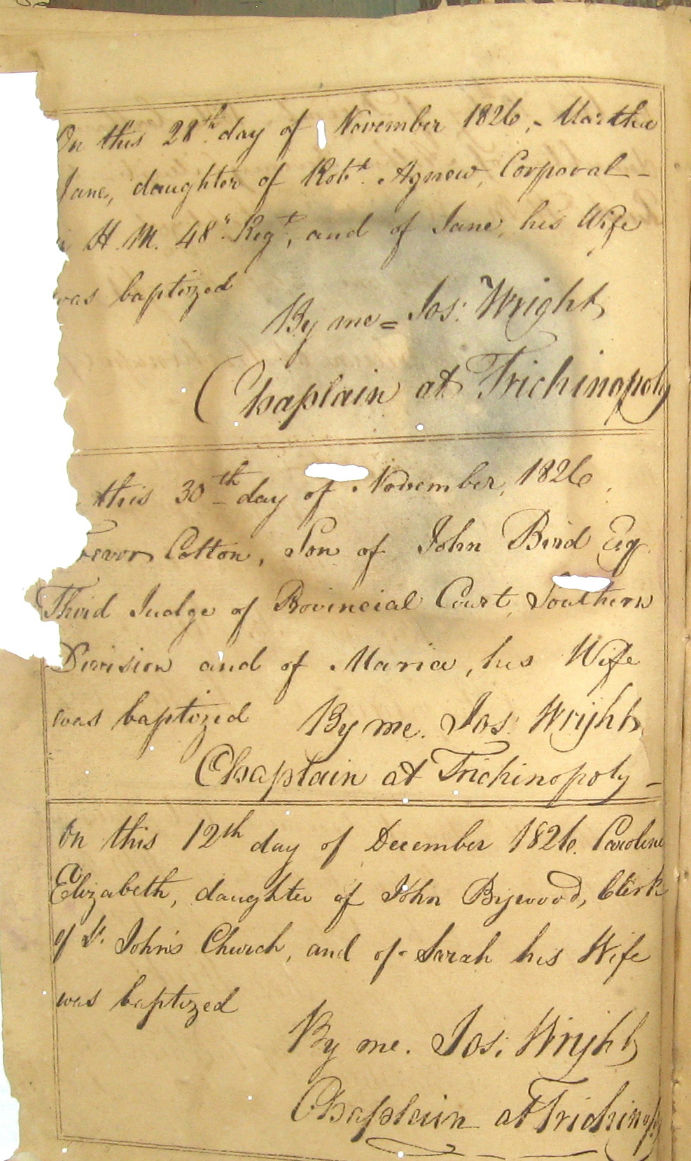 On this 28th day of November 1826, - Martha
Jane, daughter of Robt. Agnew, Corporal -
H. M. 48th Regt, and of Jane, his Wife
was baptized
By me = Jos: Wright
Chaplain at Trichinopoly
this 30th day of November, 1826,
Trevor Cotton, Son of John Bird Esq
Third Judge of Provincial Court, Southern
Division and of Maria, his Wife
was baptized By me. Jos: Wright
Chaplain at Trichinopoly -
On this 12th day of December 1826. Caroline
Elizabeth, daughter of John Bywood, Clerk
of St. John's Church, and of Sarah his Wife
was baptized
By me. Jos: Wright
Chaplain at Trichinopoly